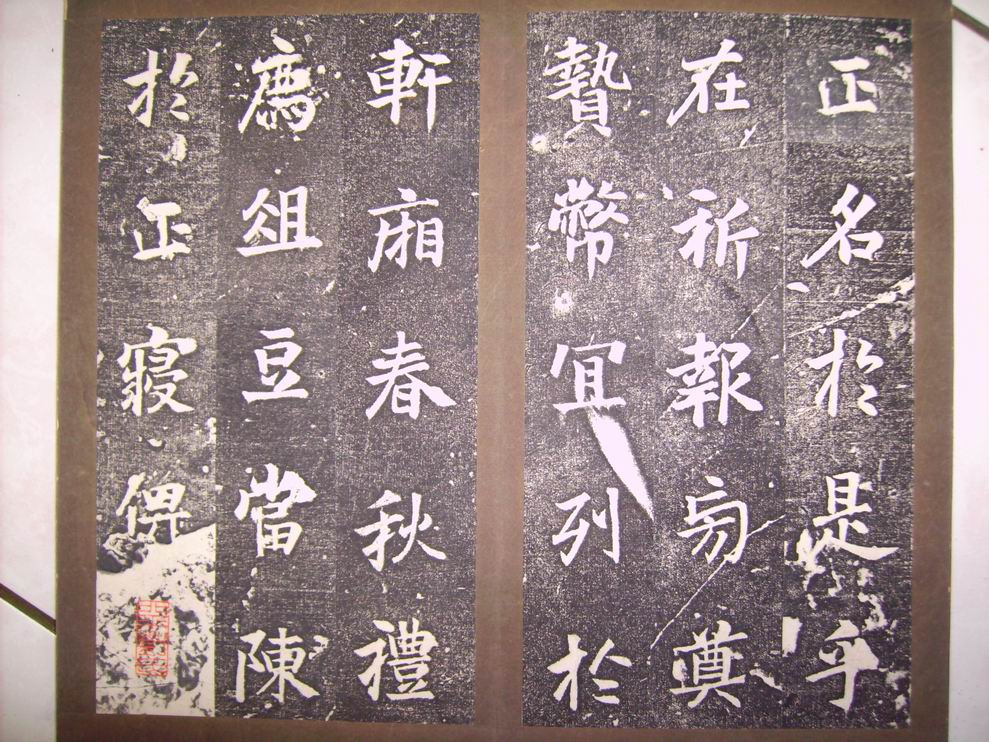 正名於是乎
在祈報奠
贄幣宜列於
軒廂春秋禮
薦俎豆當陳
於正寢